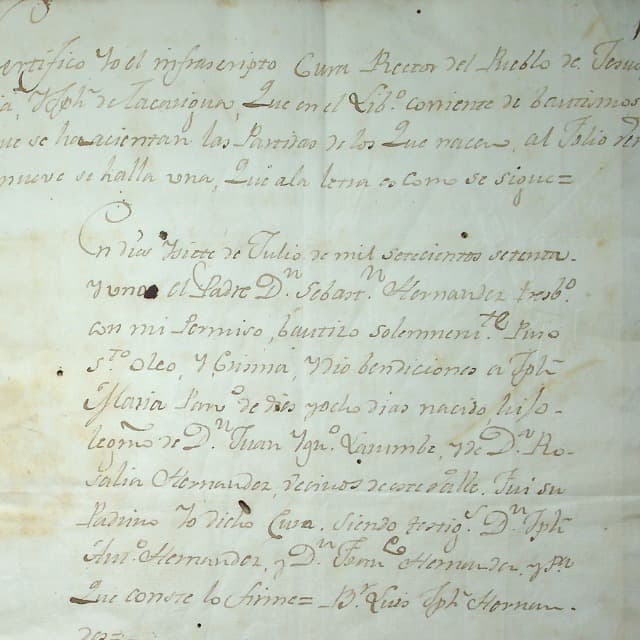 certifico Yo el infrascripto Cura Rector del Pueblo de
Jph. de Tacarigua, Que en el Libº. corriente de bautismos
que se ha acientan las Partidas de los Que nacen, al folio
nueve se halla una, Que ala letra es como se sigue=
En dies Ysiete de Julio de mil setecientos setenta
Y uno el Padre Dn. Sebastn. Hernandez Presbº.
con mi Permiso, bautizo solemnemte. Puso
sto. Oleo, Y Crisma, Ydio bendiciones a Jph
Maria Ramº. de dies yocho dias nacido, hijo
legmº. de Dn. Juan Ygnº. Lauumbe, y de Dª. Ro-
salia Hernandez, vecinos de este Valle. Fui su
Padrino Yo dicho Cura. Siendo testigs. Dn. Jph
Antº. Hernandez, y Dn. Franco. Hernandez y Pª.
Que conste lo firme= Br. Luis Jph. Hernan-
dez=